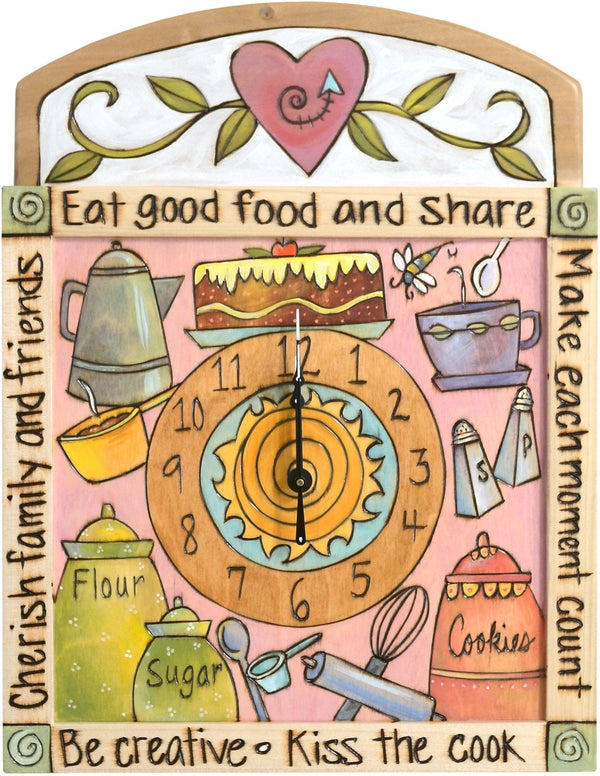 Eat good food and share
Make each moment count
Be creative • Kiss the cook
Cherish family and friends
12
1
2
3
4
5
6
7
8
9
10
11
S
P
Flour
Sugar
Cookies